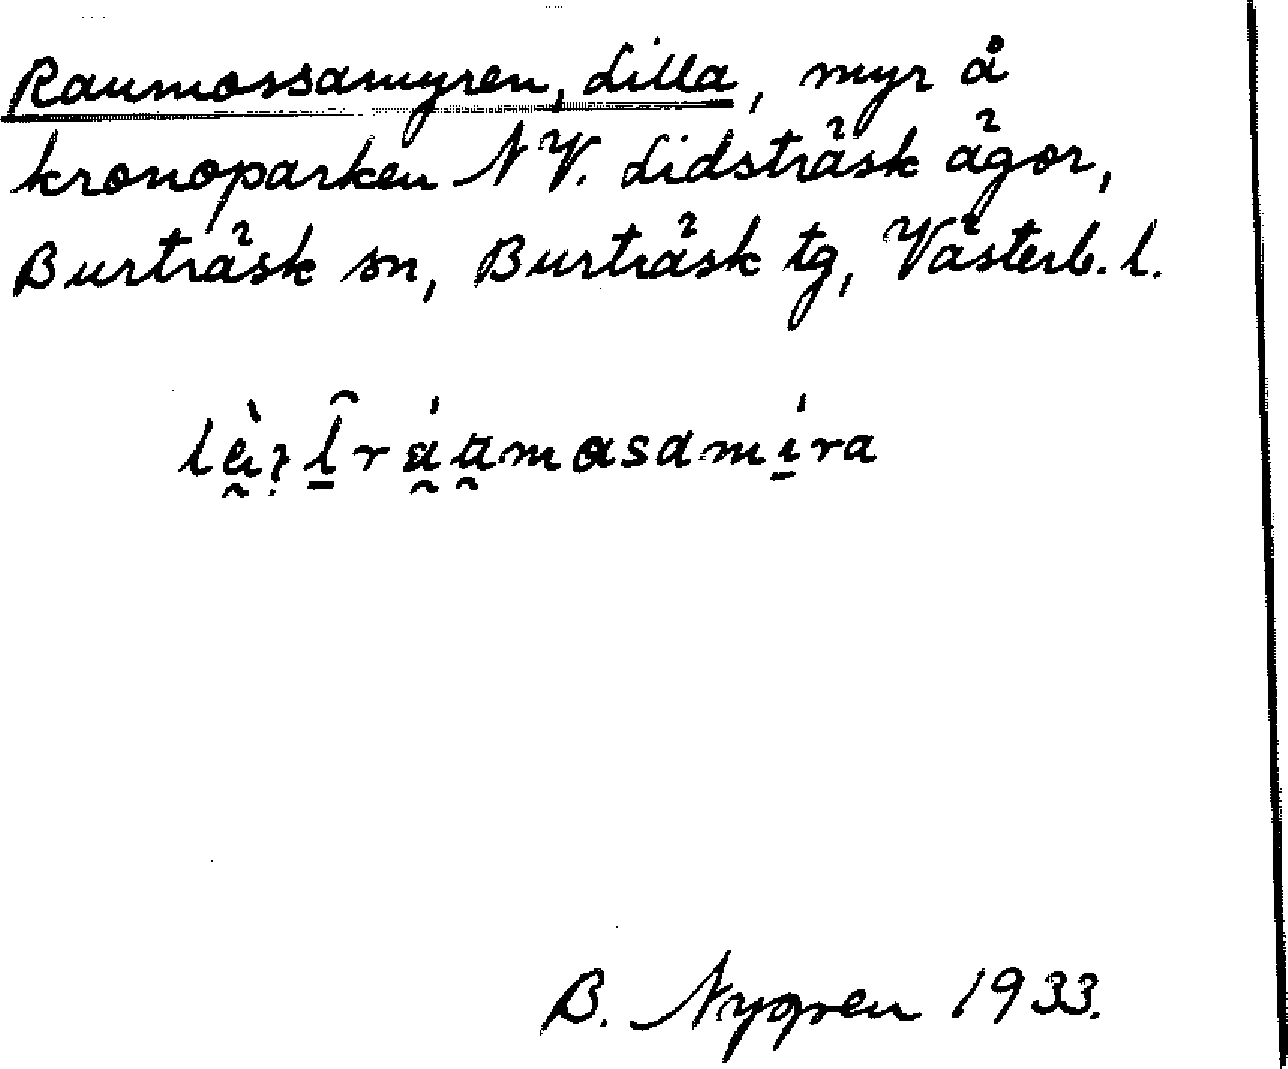 Raumossamyren, Lilla, myr å
kronoparken NV. Lidsträsk ägor,
Burträsk sn, Burträsk tg, Västerb. l.
B. Nygren 1933.